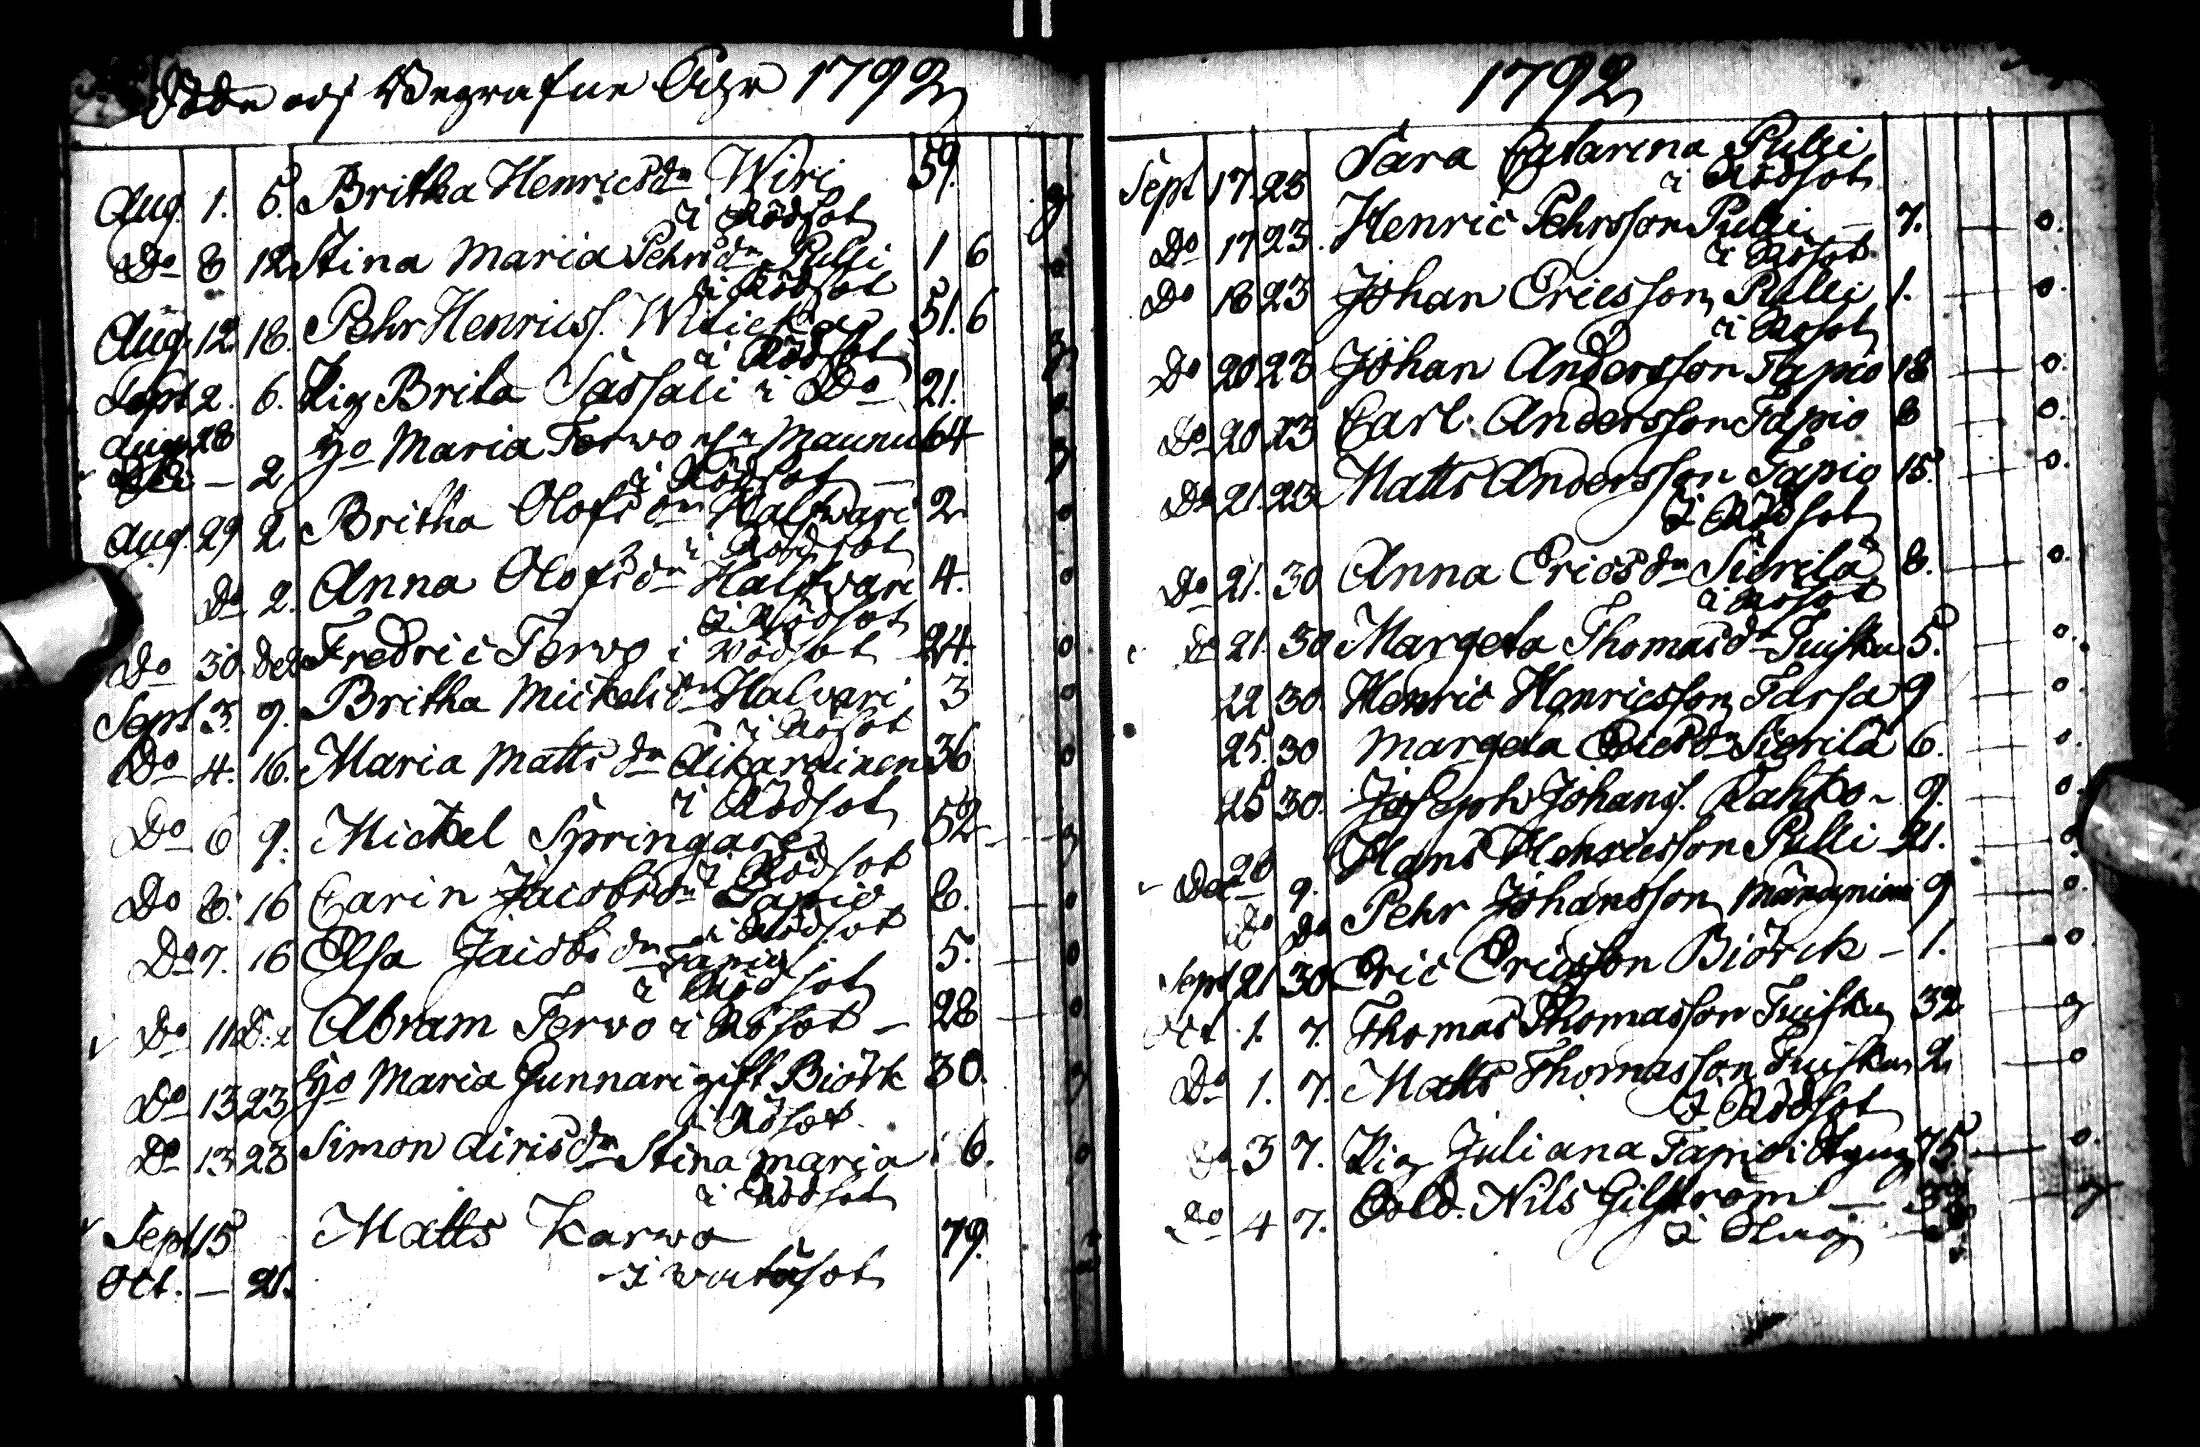 Döde och Begrafne Åhr 1792
Aug. 1. 5. Britha Henricsdr Wiri 59.
i Rödsot g
Do 8 12 Stina Maria Pehrsdr Pulli 1 6
i Rödsot o
Aug. 12. 18. Pehr Henricss. 51. 6
i Rödsot g
Sept 2. 6. Pig Brita Sassali i Do 21. o
Aug 28
— 2 Ho Maria Terwo Maunu 64
i Rödsot — g
Aug. 29 2 Britha Olofsdr Halfwari 2 o
i Rödsot
Do 2. Anna Olofsdr Halfwari 4. o
i Rödsot
Do 30. Fredric Terwo i Rödsot 24. o
Sept 3. 9. Britha Mickelsdr Halvari 3 o
i Rösot
Do 4. 16. Maria Mattsdr Aikarainen 36 o
i Rödsot
Do 6 9. Mickel Springare 52 — g
i Rödsot
Do 8. 16 Carin Jacobsdr Tapio 8. — o
i Rödsot
Do 7. 16 Elsa Jacobsdr Tapio 5. — o
i Rödsot
Do 11 Abram Terwo i Rösot — 28 — o
Do 13 23 Ho Maria Gunnari gift Biörk 30. g
i Rösot.
Do 13 23 Simon Airisdr Stina Maria 6. o
i Rödsot
Sept 15 Matts Karwo 79.
Oct. — 21.
1792
Sept 17 23 Sara Catarina Pulli
i Rödsot
Do 17 23. Henric Pehrsson Pulli — 7. — o.
i Rösot
Do 18 23 Johan Ericsson Pulli 1. — o.
i Rösot
Do 20 23 Johan Andersson Tapio 18 — o.
Do 20 23 Carl Andersson Tapio 8 — o.
Do 21. 23 Matts Andersson Tapio 15. — o.
i Rödsot
Do 21. 30 Anna Ericsdr Sierilä 8. — o.
i Rösot
Do 21. 30 Margeta Thomasdr Tuisku 5. — o.
22 30. Henric Henricsson Tarsa 9 — o.
25. 30 Margeta Ericsdr Sierilä 6. — o.
25 30. Joseph Johanss. Rahko — 9. — o.
28 9. Hans Henricsson Pulli 21. — o
Do Do Pehr Johansson 9 — o.
Sept 21 30 Eric Ericsson Biörck — 1. — o.
Oct 1. 7. Thomas Thomasson Tuisku 32 — g
Do 1. 7. Matts Thomasson Tuisku 2 — o
i Rödsot
Do 3 7. Pig Juliana Tapio i 75. — o.
Do 4 7. Nils Gilström — g